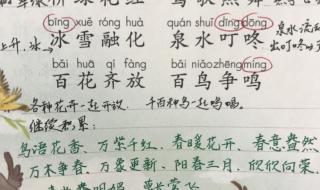 bīng xuě róng huà quán shuǐ dīng dōng
冰雪融化 泉水叮咚
泉水流
上升,冰
出叮咚
bǎi huā qí fàng bǎi niǎo zhēng míng
百花齐放 百鸟争鸣
各种花开一起开放 千百种鸟一起鸣唱。
继续积累:
鸟语花香、万紫千红、春暖花开、春意盎然
万木争春、万象更新、阳春三月、欣欣向荣、